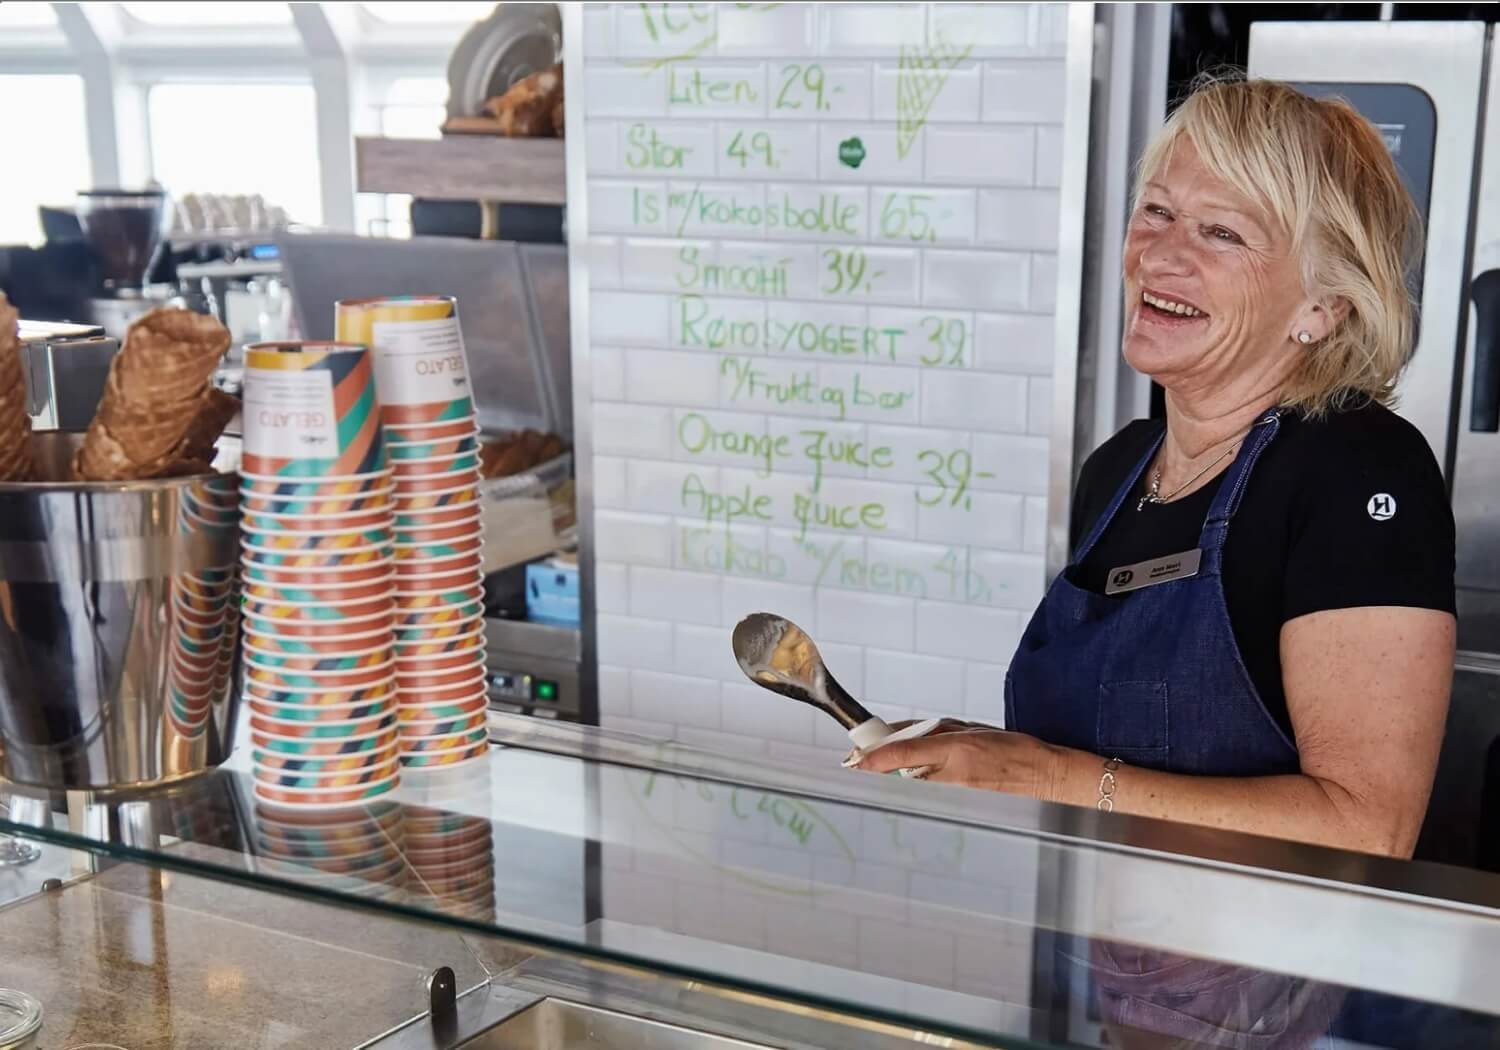 Ice
Liten 29.-
Stor 49.-
Is m/kokosbolle 65,-
Smoothi 39,-
RørosYOGERT 39
m/Frukt og bær
Orange Juice
39,-
Apple Juice
Kakao m/krem 46,-
GELATO
GELATO
Ann Mari
H